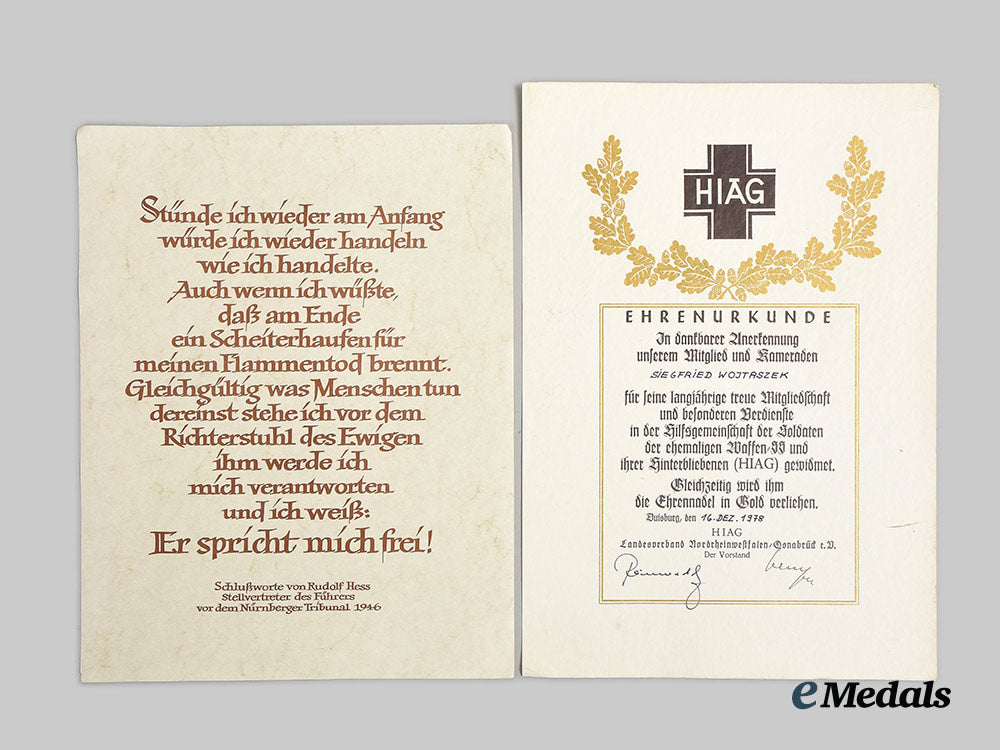 Stünde ich wieder am Anfang
würde ich wieder handeln
wie ich handelte.
Auch wenn ich wüßte,
daß am Ende
ein Scheiterhaufen für
meinen Flammentod brennt.
Gleichgültig was Menschen tun
dereinst stehe ich vor dem
Richterstuhl des Ewigen
ihm werde ich
mich verantworten
und ich weiß:
Er spricht mich frei!
Schlußworte von Rudolf Hess
Stellvertreter des Führers
vor dem Nürnberger Tribunal 1946
HIAG
EHRENURKUNDE
In dankbarer Anerkennung
unserem Mitglied und Kameraden
SIEGFRIED WOJTASZEK
für seine langjährige treue Mitgliedschaft
und besonderen Verdienste
in der Hilfsgemeinschaft der Soldaten
der ehemaligen Waffen-SS und
ihrer Hinterbliebenen (HIAG) gewidmet.
Gleichzeitig wird ihm
die Ehrennadel in Gold verliehen.
Duisburg, den 16. DEZ. 1978
HIAG
Landesverband Nordrheinwestfalen/Osnabrück e.V.
Der Vorstand
eMedals